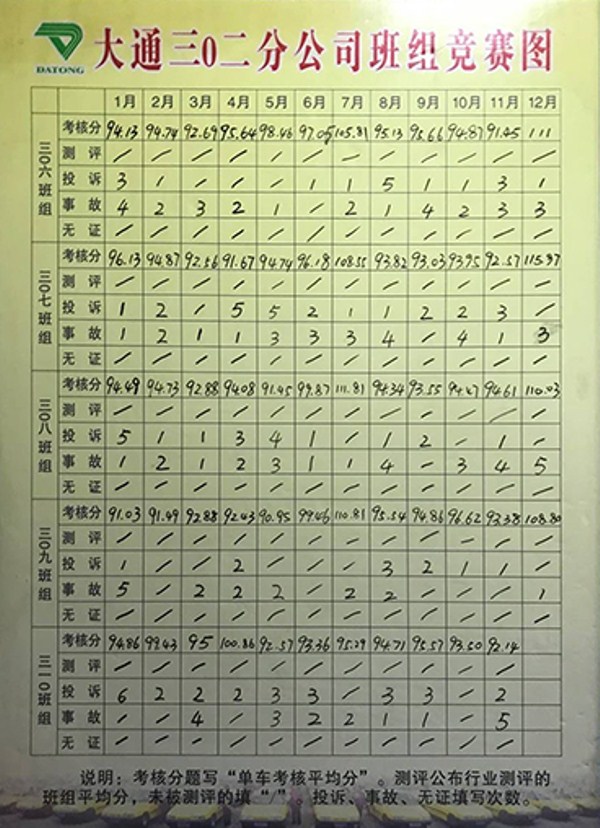 DATONG
大通三0二分公司班组竞赛图
1月 2月 3月 4月 5月 6月 7月 8月 9月 10月 11月 12月
三0六班组
考核分 94.13 94.74 92.69 95.64 98.46 97.05 105.81 95.13 95.66 94.87 91.45 111
测评 / / / / / / / / / / / /
投诉 3 1 / / / 1 1 5 1 1 3 1
事故 4 2 3 2 1 / 2 1 4 2 3 3
无证 / / / / / / / / / / / /
三0七班组
考核分 96.13 94.87 92.56 91.67 94.74 96.18 108.55 93.82 93.03 93.95 92.57 115.37
测评 / / / / / / / / / / / /
投诉 1 2 / 5 5 2 1 1 2 2 3 /
事故 1 2 1 1 3 3 3 4 / 4 1 3
无证 / / / / / / / / / / / /
三0八班组
考核分 94.49 94.73 92.88 94.08 91.45 99.87 111.81 94.34 93.55 94.47 94.61 110.03
测评 / / / / / / / / / / / /
投诉 5 1 1 3 4 1 / 1 2 - 1 /
事故 1 2 1 2 3 1 1 4 - 3 4 5
无证 / / / / / / / / / / / /
三0九班组
考核分 91.03 91.49 92.88 92.43 90.95 99.46 110.81 95.54 94.86 96.62 93.38 108.80
测评 / / / / / / / / / / / /
投诉 1 / / 2 / / / 3 2 1 1 /
事故 5 / 2 2 2 / 2 2 / / / 1
无证 / / / / / / / / / / / /
三一0班组
考核分 94.86 99.43 95 100.86 92.57 93.36 95.29 94.71 95.57 93.50 92.14
测评 / / / / / / / / / / /
投诉 6 2 2 2 3 3 / 3 3 / 2
事故 / / 4 / 3 2 2 1 1 / 5
无证 / / / / / / / / / / /
说明：考核分题写“单车考核平均分”。测评公布行业测评的
班组平均分，未被测评的填“/”。投诉、事故、无证填写次数。